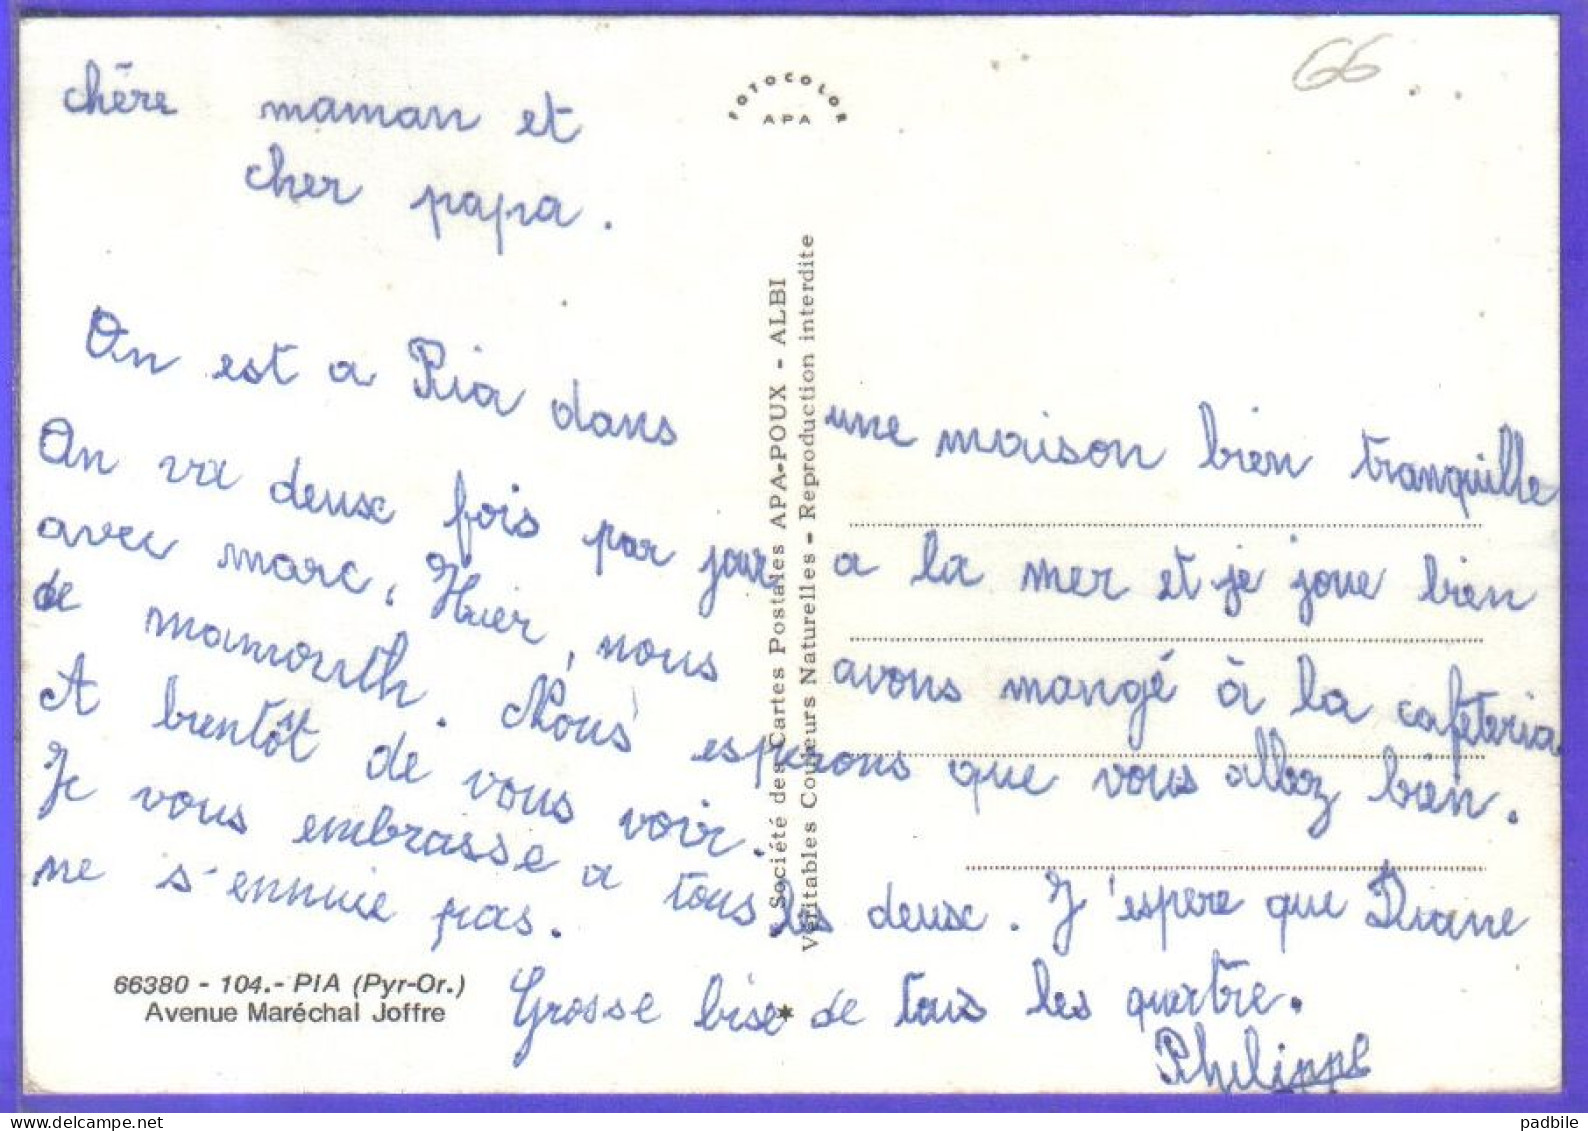 66
FOTOCOLOR
APA
chère maman et
cher papa.
On est a Pia dans une maison bien tranquille
On va deux fois par jour a la mer et je joue bien
avec marc. Hier, nous avons mangé à la cafeteria
de mamouth. Nous esperons que vous allez bien.
A bientôt de vous voir.
Je vous embrasse a tous les deux. J'espere que Diane
ne s'ennuie pas.
Grosse bise de tous les quatre.
Philippe
Société des Cartes Postales APA-POUX - ALBI
Véritables Couleurs Naturelles - Reproduction interdite
66380 - 104.- PIA (Pyr-Or.)
Avenue Maréchal Joffre
padbile